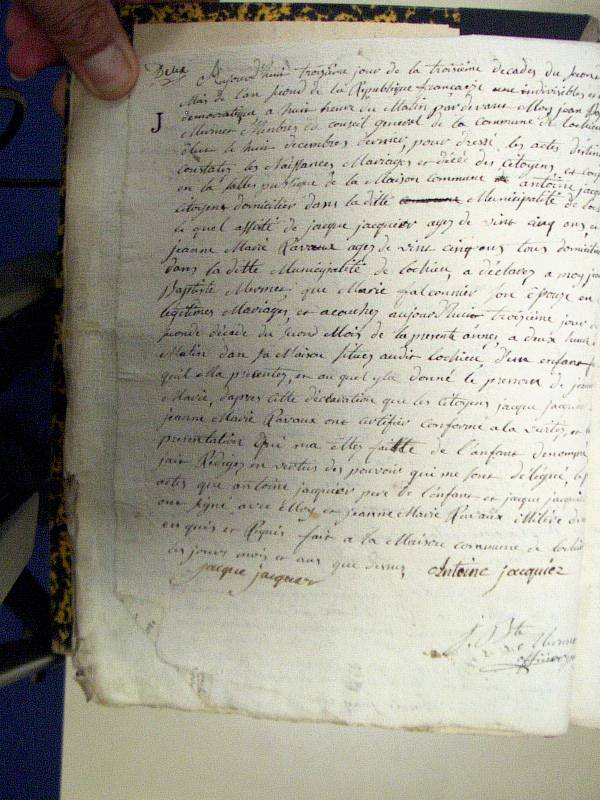 Deux
Aujourd'huit troizième jour de la troisième decades du second
Mois de l'an second de la République française une indivisibles et
J
democratique a huit heure du Matin par devant Moy jean
Murner Membres du conseil general de la commune de lochieu
élut le huit decembres dernier, pour dressé les actes destin
constatés les Naissances Mariages et décés des citoyens, est comp
en la salles publique de la Maison commune antoine jacq
citoyens domicilier dans la ditte commune Municipalité de loch
le quel assisté de jacque jacquier agez de vint cinq ans et
jeanne Marie Ravaux agez de vint cinq ans tous domicilier
dans la ditte Municipalité de lochieu, a déclarez a moy jean
Baptiste Murner que Marie falconnier son épouze en
legitimes Mariages, est acouchez aujourd'huit troizième jour
seconde décade du second Mois de la presente années, a deux heure
Matin dan sa Maison situez audit lochieu d'un enfant
quil Ma presentez, et au quel y la donné le prenom de jeanne
Marie, d'apres cette déclaration que les citoyens jacque jacquier
jeanne Marie Ravaux ont certifier conforme a la verites, et la
presentation qui ma êttes faitte de l'enfant denommé
jait Rédigez en vertus des pouvoir qui me sont délégué, les
actes que antoine jacquier pere de l'enfant et jacque jacquier
ont signé avec Moy et jeanne Marie Ravaux illitéré de
enquis et Requis fait a la Maison commune de lochieu
les jours mois et ans que dessus
jacque jacquier antoine jacquiez
J. Bte Murner
officier